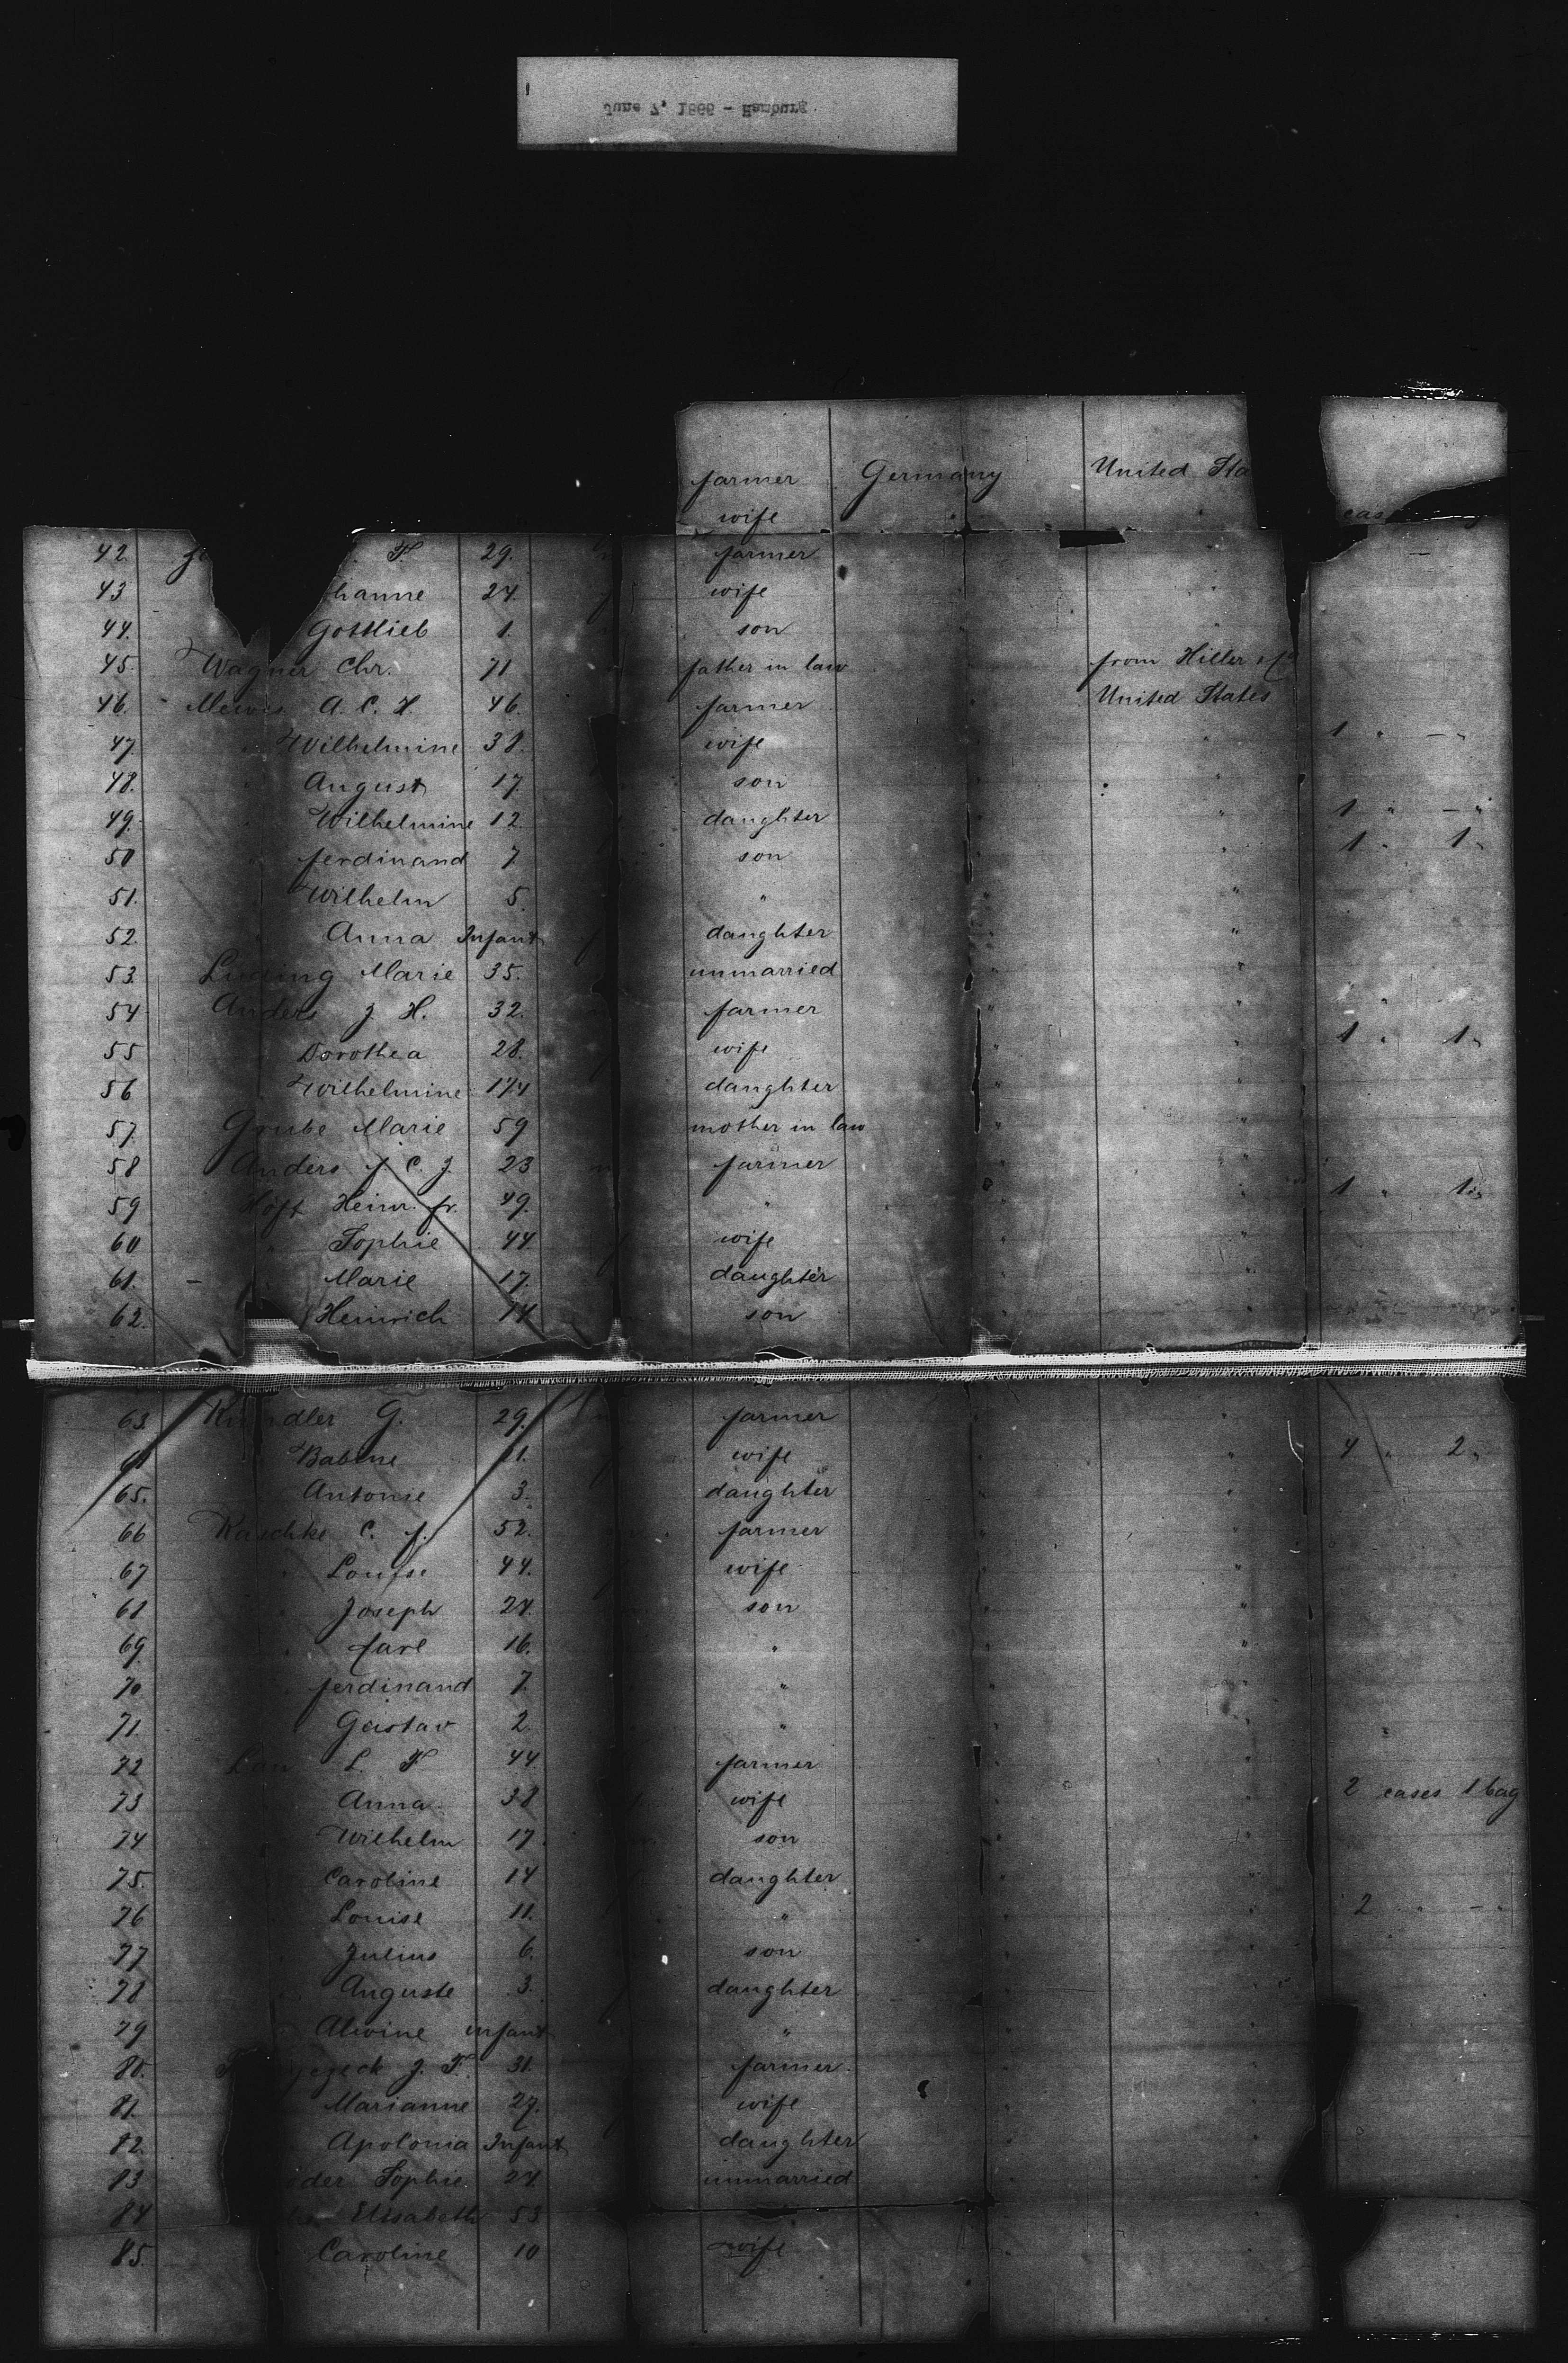 June 7, 1866 - Hamburg.
farmer Germany United Sta
wife cas
42. F. 29. farmer
43 hanne 24. wife
44. Gottlieb 1. son
45. Wagner Chr. 71 father in law from Hiller
46. A. C. H. 46. farmer United States
47. " Wilhelmine 38. wife " 1 " — "
48. " August 17. son "
49. " Wilhelmine 12. daughter " 1 " — "
50 " ferdinand 7 son " 1 " 1 "
51. Wilhelm 5. " "
52. Anna Infant daughter " "
53. Marie 35. unmarried " "
54 Anders J. H. 32. farmer " "
55 " Dorothea 28. wife " " 1 " 1 "
56 Wilhelmine daughter " "
57. Grube Marie 59 mother in law " "
58 Anders f. C. J. 23 farmer " "
59 Höft Heinr. fr. 49. " " 1 " 1 "
60 " Sophie 44 wife " "
61. — Marie 17. daughter " "
62. Heinrich 14 son " "
63 G. 29. farmer "
Babine wife " 4 " 2 "
65. Antonie 3. daughter "
66 Raschke C. f. 52. farmer " "
67 " Louise 44. wife " "
68 Joseph 24. son " "
69. " Carl 16. " " "
70. ferdinand 7. " " "
71. Gustav 2. " " "
72 L. F. 44 farmer " "
73 Anna 38 wife " 2 cases 1 bag
74 Wilhelm 17. son " "
75. Caroline 14 daughter " "
76 Louise 11. " " 2 " — "
77 Julius 6. son " "
78 Auguste 3. daughter " "
79 Alwine infant " " "
80. J. F. 31. farmer " "
81. Marianne 27. wife " "
82. Apolonia Infant daughter " "
83 der Sophie 24. unmarried " "
84 Elisabeth 53 "
85. Caroline 10 wife " "